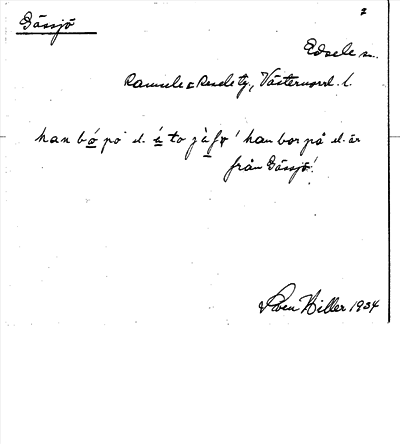 Gåssjö
2
Edsele sn.
Ramsele o Resele tg., Västernorrl. l.
han bó̱ pó d. á̱ to
' han bor på d. är
från Gåssjö'.
Sven Hiller 1934